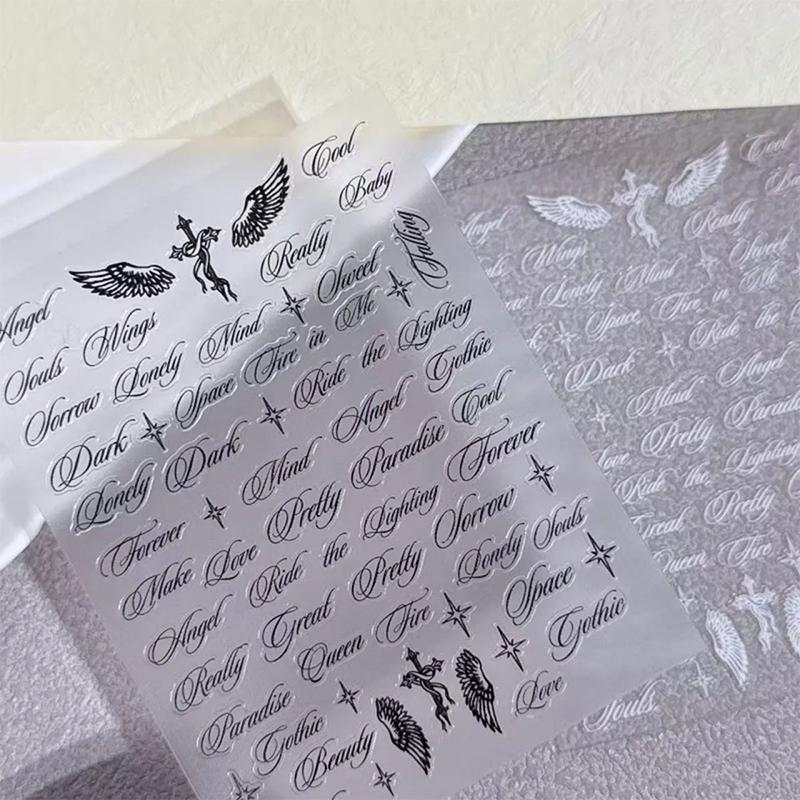 Cool
Baby
Really
Falling
Angel
Sweet
Souls Wings
Mind
Me
Sorrow Lonely
Space Fire in
Ride the Lighting
Dark
Gothic
Lonely Dark
Mind Angel Cool
Forever
Pretty Paradise
Make Love
Forever
Ride the Lighting
Angel
Sorrow
Great Pretty
Lonely Souls
Really
Queen Fire
Space
Paradise
Gothic
Gothic
Love
Beauty
Cool
Really
Angel
Wings
Sweet
Lonely Mind
Space Fire in Me
Ride the
Dark
Mind Angel
Love Pretty
Ride the Lighting
Great Pretty
Queen Fire
Souls